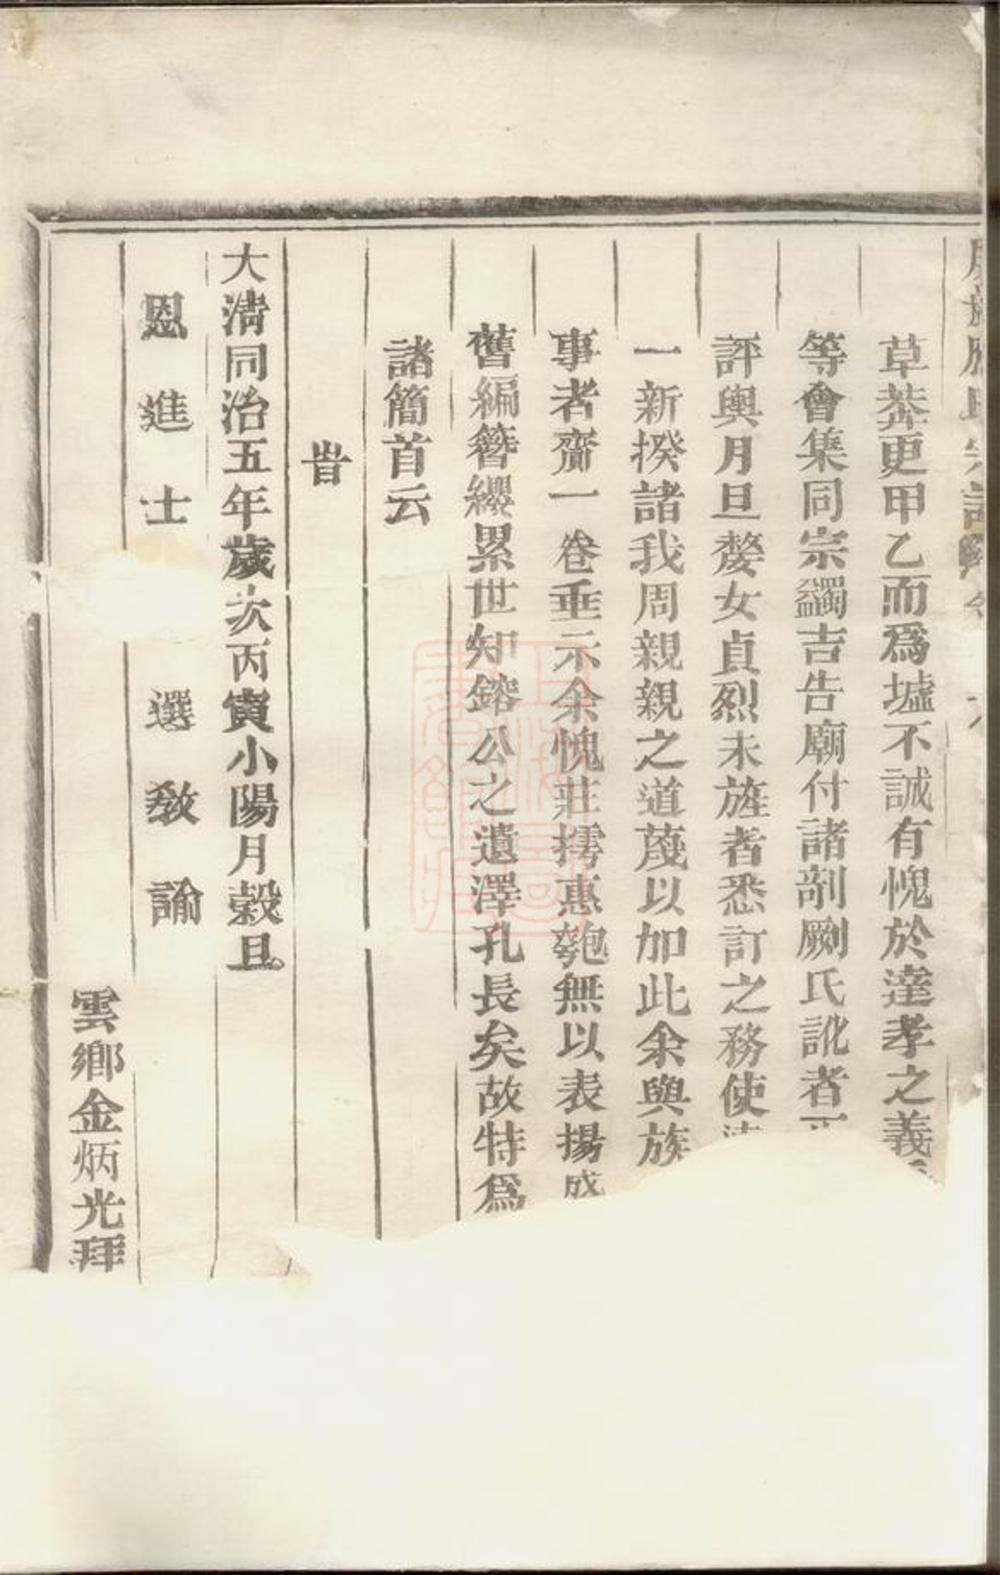 草莽更甲乙而爲墟不誠有愧於達孝之義
等會集同宗蠲吉告廟付諸剞劂氏訛者正
評輿月旦嫠女貞烈未旌者悉訂之務使
一新揆諸我周親親之道蔑以加此余與族
事者齎一卷垂示余愧莊摴惠匏無以表揚盛
舊編簪纓累世知鎔公之遺澤孔長矣故特爲
諸簡首云
旹
大淸同治五年歲次丙寅小陽月穀旦
恩進士 選教諭
雲鄉金炳光拜